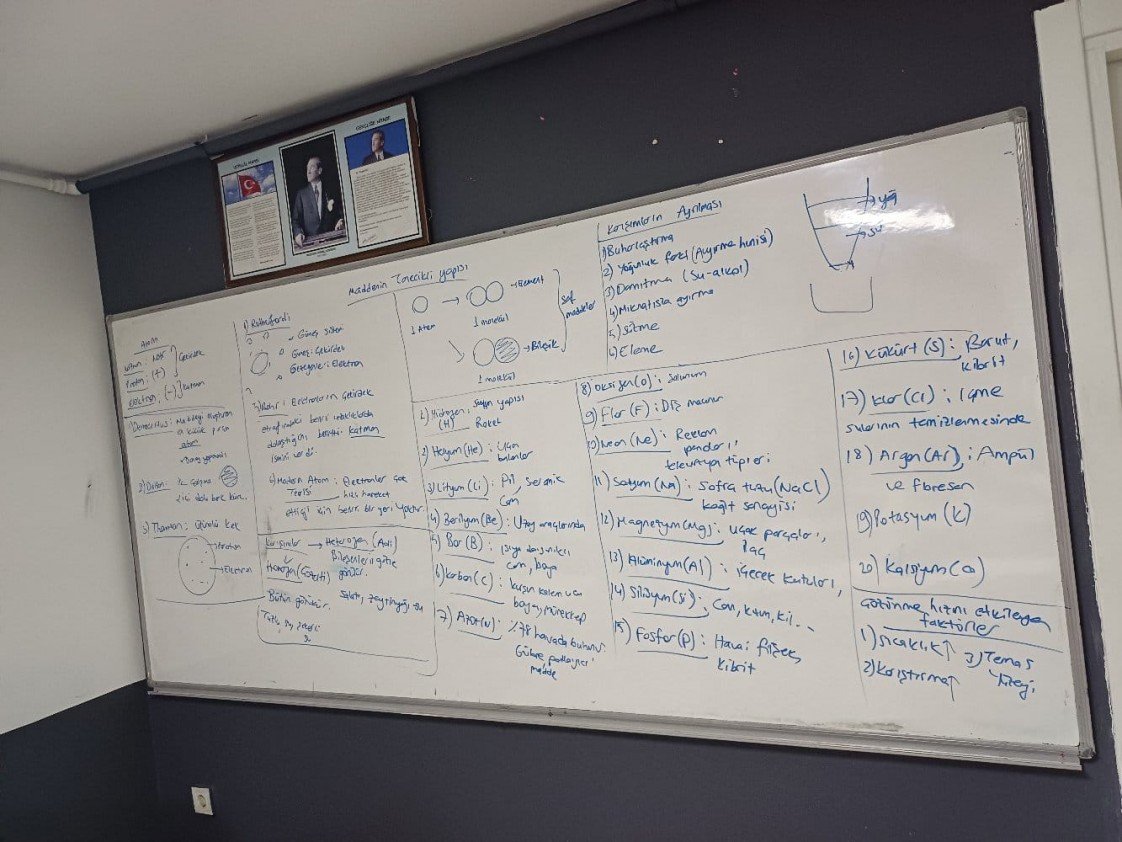 Maddenin Tanecikli yapısı
Atom
Nötron: Nötr
Proton: (+)
Çekirdek
elektron: (-)
Katman
1) Democritus: Maddeyi oluşturan
en küçük parça
atom
2) Dalton:
içi dolu berk
3) Thomson: Üzümlü kek
Proton
Elektron
4) Rutherford:
Güneş sistemi
Güneş: Çekirdek
Gezegenler: Elektron
Bohr: Elektronların Çekirdek
etrafındaki belirli uzaklıklarda
dolaştığını, belirtti. Katman
ismini verdi.
Modern Atom: Elektronlar çok
Teorisi hızlı hareket
ettiği için belirli bir yeri yoktur.
Karışımlar → Heterojen (Adi)
Bileşenleri gözle
görülür.
Homojen (Çözelti)
Bütün görünür.
Salata, zeytinyağı su
Tuzlu su, şekerli
su
1 Atom
1 molekül
→ Element
1 molekül
→ Bileşik
Saf
maddeler
Karışımların Ayrılması
1) Buharlaştırma
2) Yoğunluk farkı (Ayırma hunisi)
3) Damıtma (Su-alkol)
4) Mıknatısla ayırma
5) Süzme
6) Eleme
yağ
su
1) Hidrojen: yapısı
(H) Roket
2) Helyum (He): Uçan
balonlar
3) Lityum (Li): Pil, seramik
cam,
4) Berilyum (Be): Uzay araçlarında
5) Bor (B): ısıya dayanıklı
cam, boya
6) Karbon (C): kurşun kalem ucu
boya, mürekkep
7) Azot (N): %78 havada bulunur.
Gübre patlayıcı
madde
8) Oksijen (O): Solunum
9) Flor (F): Diş macunu
10) Neon (Ne): Reklam
panoları,
televizyon tüpleri
11) Sodyum (Na): Sofra tuzu (NaCl)
kağıt sanayisi
12) Magnezyum (Mg): uçak parçaları,
ilaç
13) Alüminyum (Al): içecek kutuları,
14) Silisyum (Si): Cam, kum, kil...
15) Fosfor (P): Havai fişek,
kibrit
16) Kükürt (S): Barut,
kibrit
17) Klor (Cl): içme
sularının temizlemesinde
18) Argon (Ar): Ampül
ve floresan
19) Potasyum (K)
20) Kalsiyum (Ca)
Çözünme hızını etkileyen
faktörler
1) Sıcaklık ↑ 3) Temas
2) Karıştırma ↑ Yüzeyi